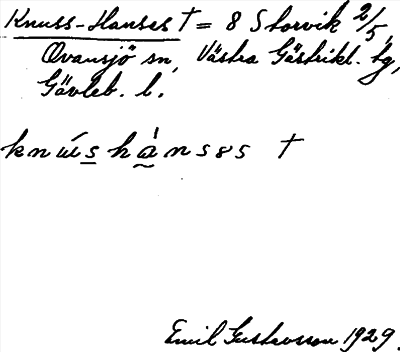 Knuss-Hanses † = 8 Storvik 2/5,
Ovansjö sn, Västra Gästrikl. tg,
Gävleb. l.
knus hansəs †
Emil Gustavsson 1929.